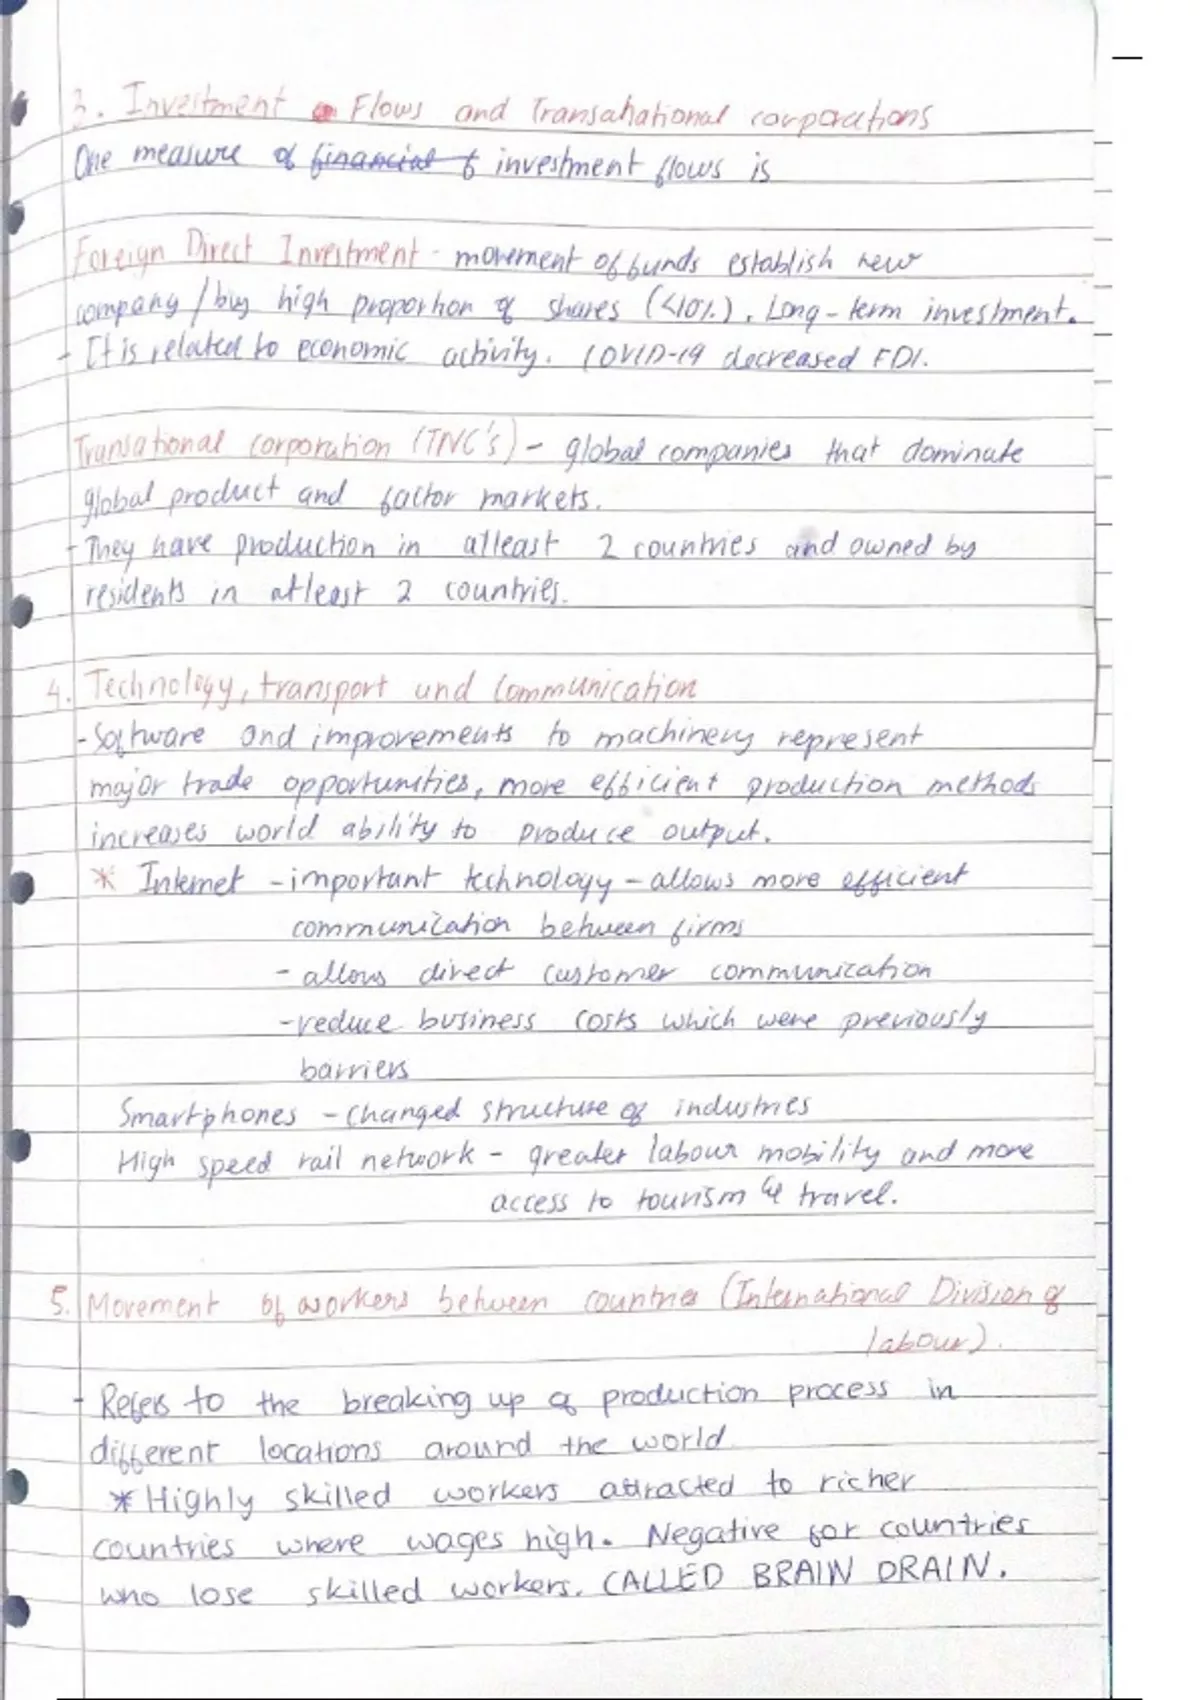 3. Investment Flows and Transnational corporations
One measure of financial of investment flows is
Foreign Direct Investment - movement of funds establish new
company / buy high proportion of shares (<10%). Long-term investment.
- It is related to economic activity. COVID-19 decreased FDI.
Transational Corporation (TNC's) - global companies that dominate
global product and factor markets.
- They have production in atleast 2 countries and owned by
residents in atleast 2 countries.
4. Technology, transport and Communication
- Software and improvements to machinery represent
major trade opportunities, more efficient production methods
increases world ability to produce output.
* Internet - important technology - allows more efficient
communication between firms
- allows direct customer communication
- reduce business costs which were previously
barriers
Smartphones - changed structure of industries
High speed rail network - greater labour mobility and more
access to tourism & travel.
5. Movement of workers between countries (International Division of
labour).
- Refers to the breaking up of production process in
different locations around the world
* Highly skilled workers attracted to richer
countries where wages high. Negative for countries
who lose skilled workers. CALLED BRAIN DRAIN.